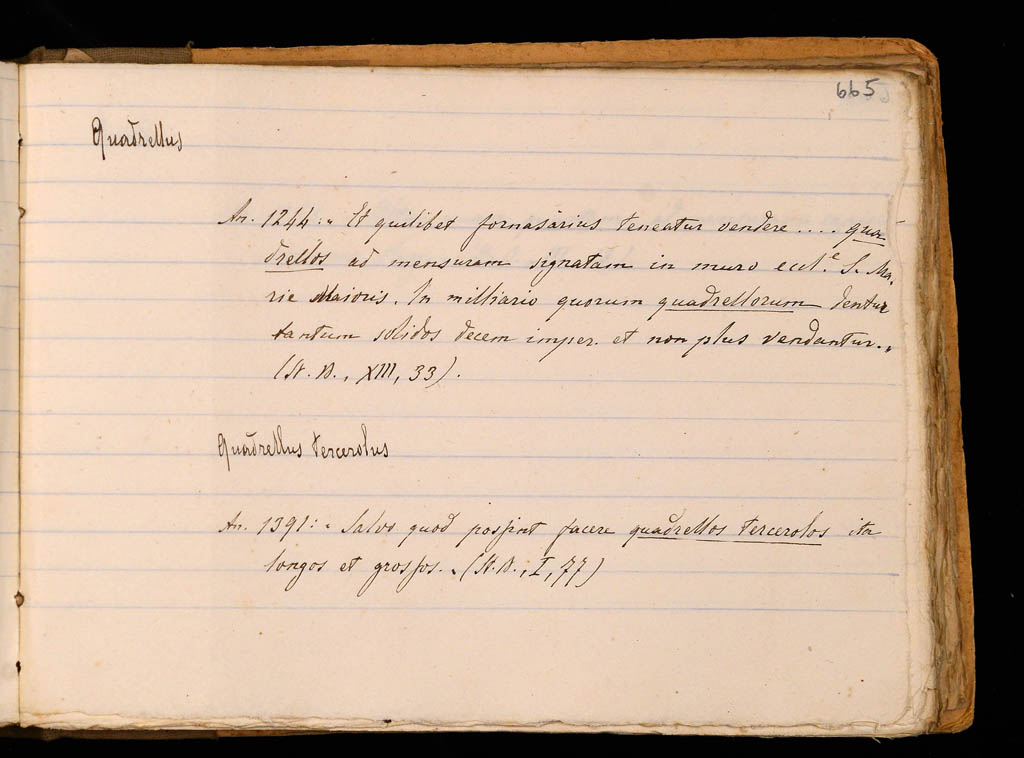 665
Quadrellus
An. 1244: " Et quilibet fornasarius teneatur vendere .... qua-
drellos ad mensuram signatam in muro eccl.e S. Ma-
rie Maioris. In milliario quorum quadrellorum dentur
tantum solidos decem imper. et non plus vendantur. "
(St. B., XIII, 33).
Quadrellus tercerolus
An. 1391: " Salvo quod possint facere quadrellos tercerolos ita
longos et grossos. " (St. B., I, 77)